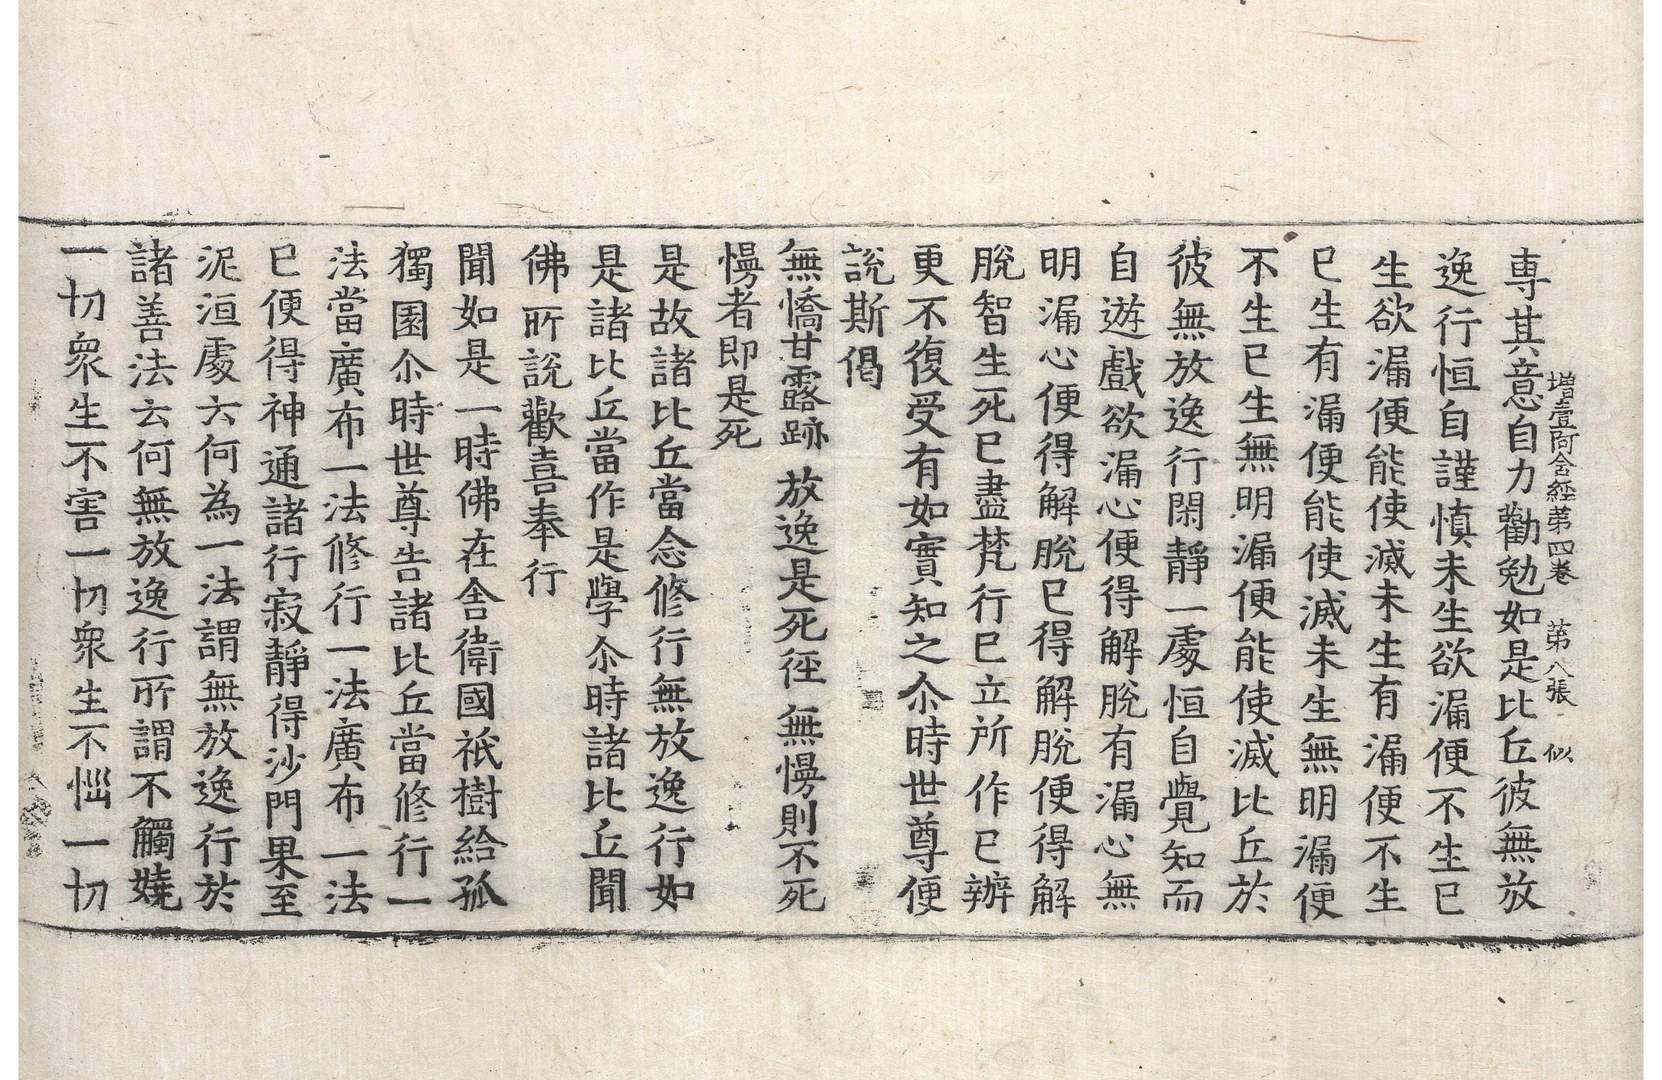 增壹阿含經第四卷 第八張 似
専其意自力勸勉如是比丘彼無放
逸行恒自謹慎未生欲漏便不生已
生欲漏便能使滅未生有漏便不生
已生有漏便能使滅未生無明漏便
不生已生無明漏便能使滅比丘於
彼無放逸行閑靜一處恒自覺知而
自遊戲欲漏心便得解脫有漏心無
明漏心便得解脫已得解脫便得解
脫智生死已盡梵行已立所作已辦
更不復受有如實知之尒時世尊便
說斯偈
無憍甘露跡 放逸是死徑 無慢則不死
慢者即是死
是故諸比丘當念修行無放逸行如
是諸比丘當作是學尒時諸比丘聞
佛所說歡喜奉行
聞如是一時佛在舍衛國祇樹給孤
獨園尒時世尊告諸比丘當修行一
法當廣布一法修行一法廣布一法
已便得神通諸行寂靜得沙門果至
泥洹處云何為一法謂無放逸行於
諸善法云何無放逸行所謂不觸嬈
一切衆生不害一切衆生不惱一切